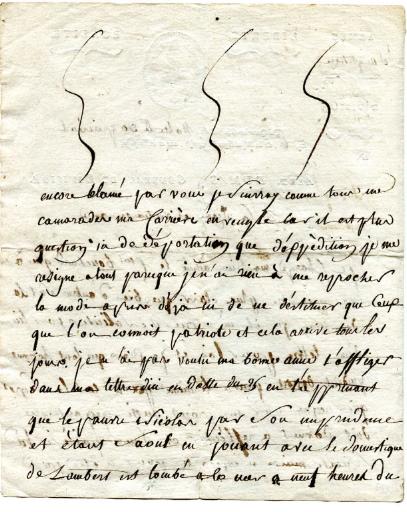 encore blamé par vous je suivray comme tous me
camarades ma Carriere en recule car il est plus
question ici de déportation que d'éxpèdition je me
resigne a tout parceque je n'ai rien à me reprocher
la mode a pris déja ici de ne destituer que Ceux
que l'on connoit patriote et cela arrive tous les
jours. je n'ai pas voulu ma bonne amie t'affliger
dans ma lettre du en datte du en t'apprenant
que le pauvre Nicolas par son imprudence
et étant Saoul en jouant avec le domestique
de Lambert est tombé a la mer a neuf heures du